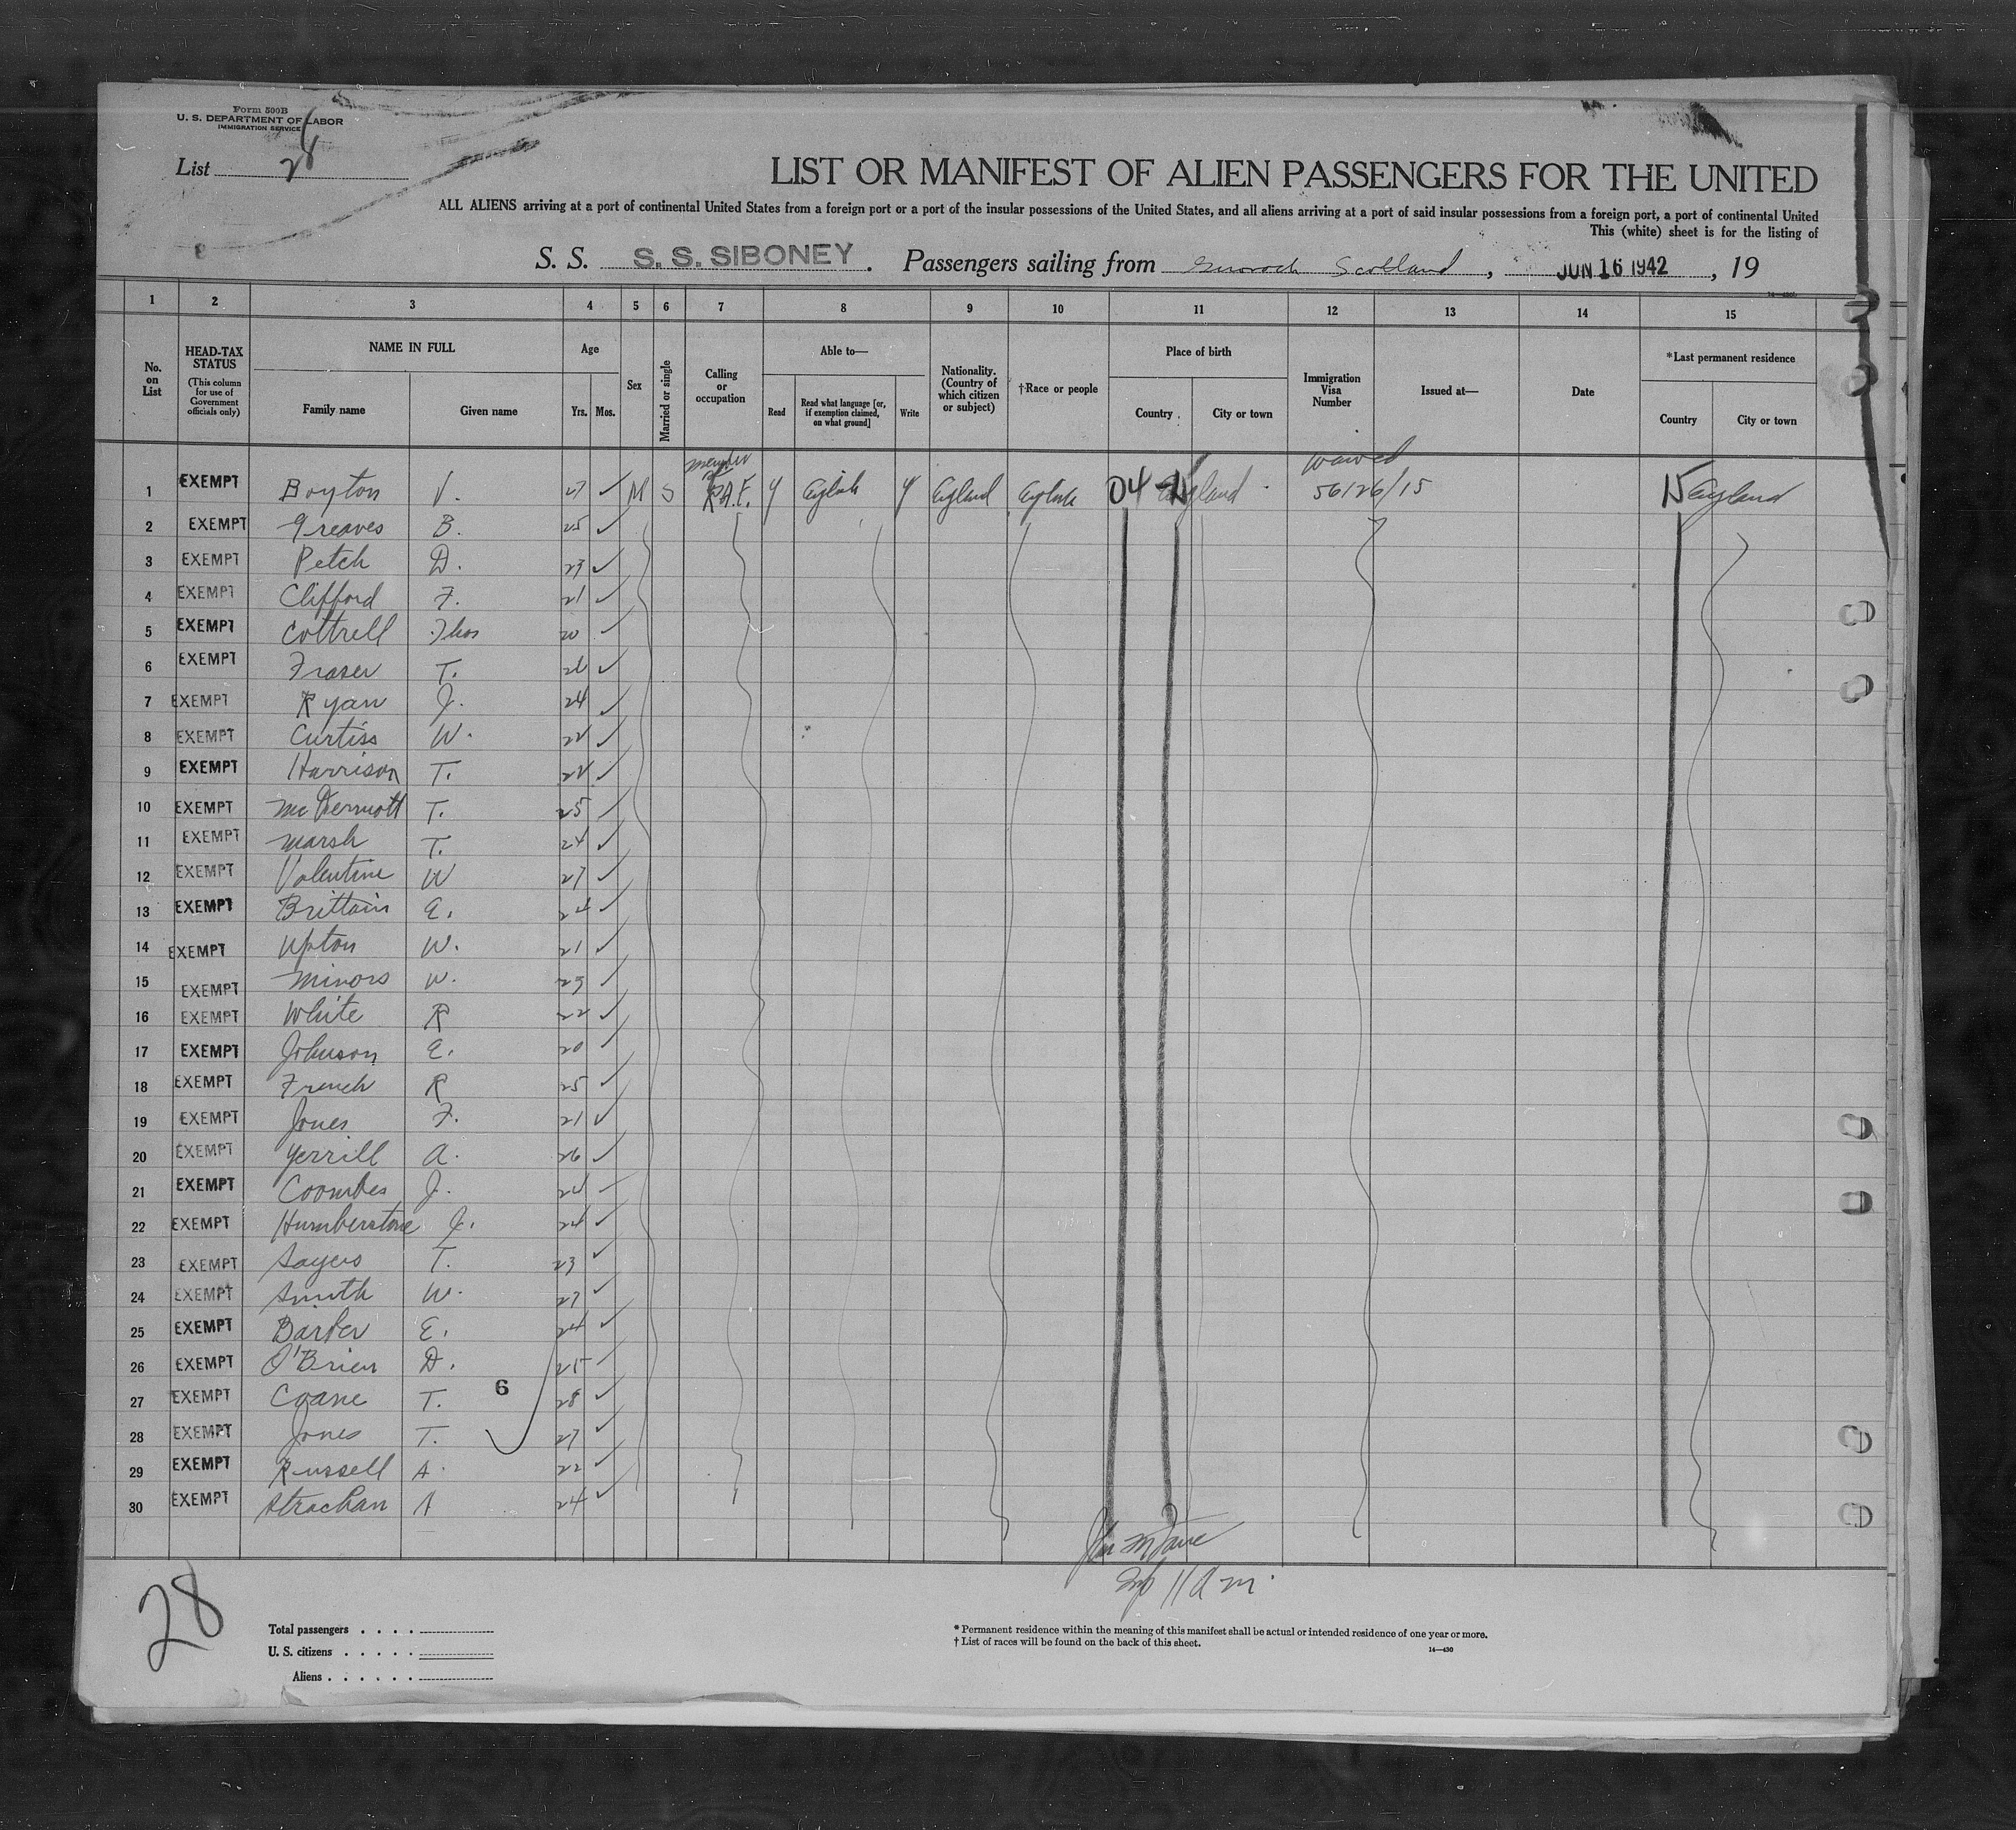 Form 500B
U. S. DEPARTMENT OF LABOR
IMMIGRATION SERVICE
List 28
LIST OR MANIFEST OF ALIEN PASSENGERS FOR THE UNITED
ALL ALIENS arriving at a port of continental United States from a foreign port or a port of the insular possessions of the United States, and all aliens arriving at a port of said insular possessions from a foreign port, a port of continental United
This (white) sheet is for the listing of
S. S. S. S. SIBONEY. Passengers sailing from Gurock Scotland, JUN 16 1942, 19
1 2 3 4 5 6 7 8 9 10 11 12 13 14 15
No. on List
HEAD-TAX STATUS (This column for use of Government officials only)
NAME IN FULL
Family name Given name
Age
Yrs. Mos.
Sex
Married or single
Calling or occupation
Able to—
Read
Read what language [or, if exemption claimed, on what ground]
Write
Nationality. (Country of which citizen or subject)
†Race or people
Place of birth
Country City or town
Immigration Visa Number
Issued at—
Date
*Last permanent residence
Country City or town
member
waived
1 EXEMPT Boyton V. 27 ✓ M S R.A.F. Y English Y England English 04 England 56126/15 15 England
2 EXEMPT Greaves B. 25 ✓
3 EXEMPT Petch D. 23 ✓
4 EXEMPT Clifford F. 21 ✓
5 EXEMPT Cottrell Thos 20 ✓
6 EXEMPT Fraser T. 26 ✓
7 EXEMPT Ryan J. 24 ✓
8 EXEMPT Curtiss W. 22 ✓
9 EXEMPT Harrison T. 22 ✓
10 EXEMPT McDermott T. 25 ✓
11 EXEMPT Marsh T. 24 ✓
12 EXEMPT Valentine W 27 ✓
13 EXEMPT Brittain E. 24 ✓
14 EXEMPT Upton W. 21 ✓
15 EXEMPT Minors W. 23 ✓
16 EXEMPT White R 22 ✓
17 EXEMPT Johnson E. 20 ✓
18 EXEMPT French R 25 ✓
19 EXEMPT Jones F. 21 ✓
20 EXEMPT Yerrill A. 26 ✓
21 EXEMPT Coombes J. 24 ✓
22 EXEMPT Humberstone J. 24 ✓
23 EXEMPT Sayers T. 23 ✓
24 EXEMPT Smith W. 27 ✓
25 EXEMPT Barber E. 24 ✓
26 EXEMPT O'Brien D. 25 ✓
27 EXEMPT Coane T. 6 28 ✓
28 EXEMPT Jones T. 27 ✓
29 EXEMPT Russell A. 22 ✓
30 EXEMPT Strachan A 24 ✓
11 am
28
Total passengers
U. S. citizens
Aliens
* Permanent residence within the meaning of this manifest shall be actual or intended residence of one year or more.
† List of races will be found on the back of this sheet.
14—430